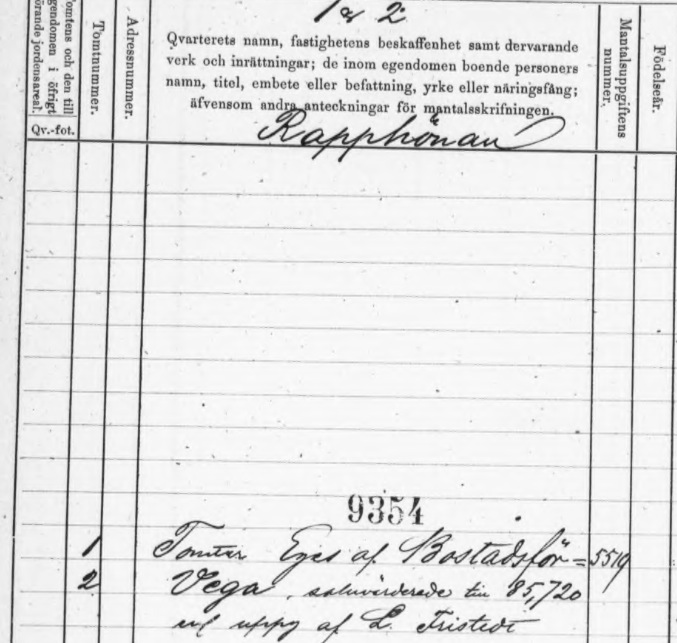 1 & 2
Tomtens och den till
egendomen i öfrigt
hörande jordensareal.
Qv.-fot.
Tomtnummer.
Adressnummer.
Qvarterets namn, fastighetens beskaffenhet samt dervarande
verk och inrättningar; de inom egendomen boende personers
namn, titel, embete eller befattning, yrke eller näringsfång;
äfvensom andra anteckningar för mantalsskrifningen.
Mantalsuppgiftens
nummer.
Födelseår.
Rapphönan
9354
1 Tomter Eges af Bostadsför= 5519
2 Vega, saluvärderade till 85,720
enl uppg af L. Fristedt